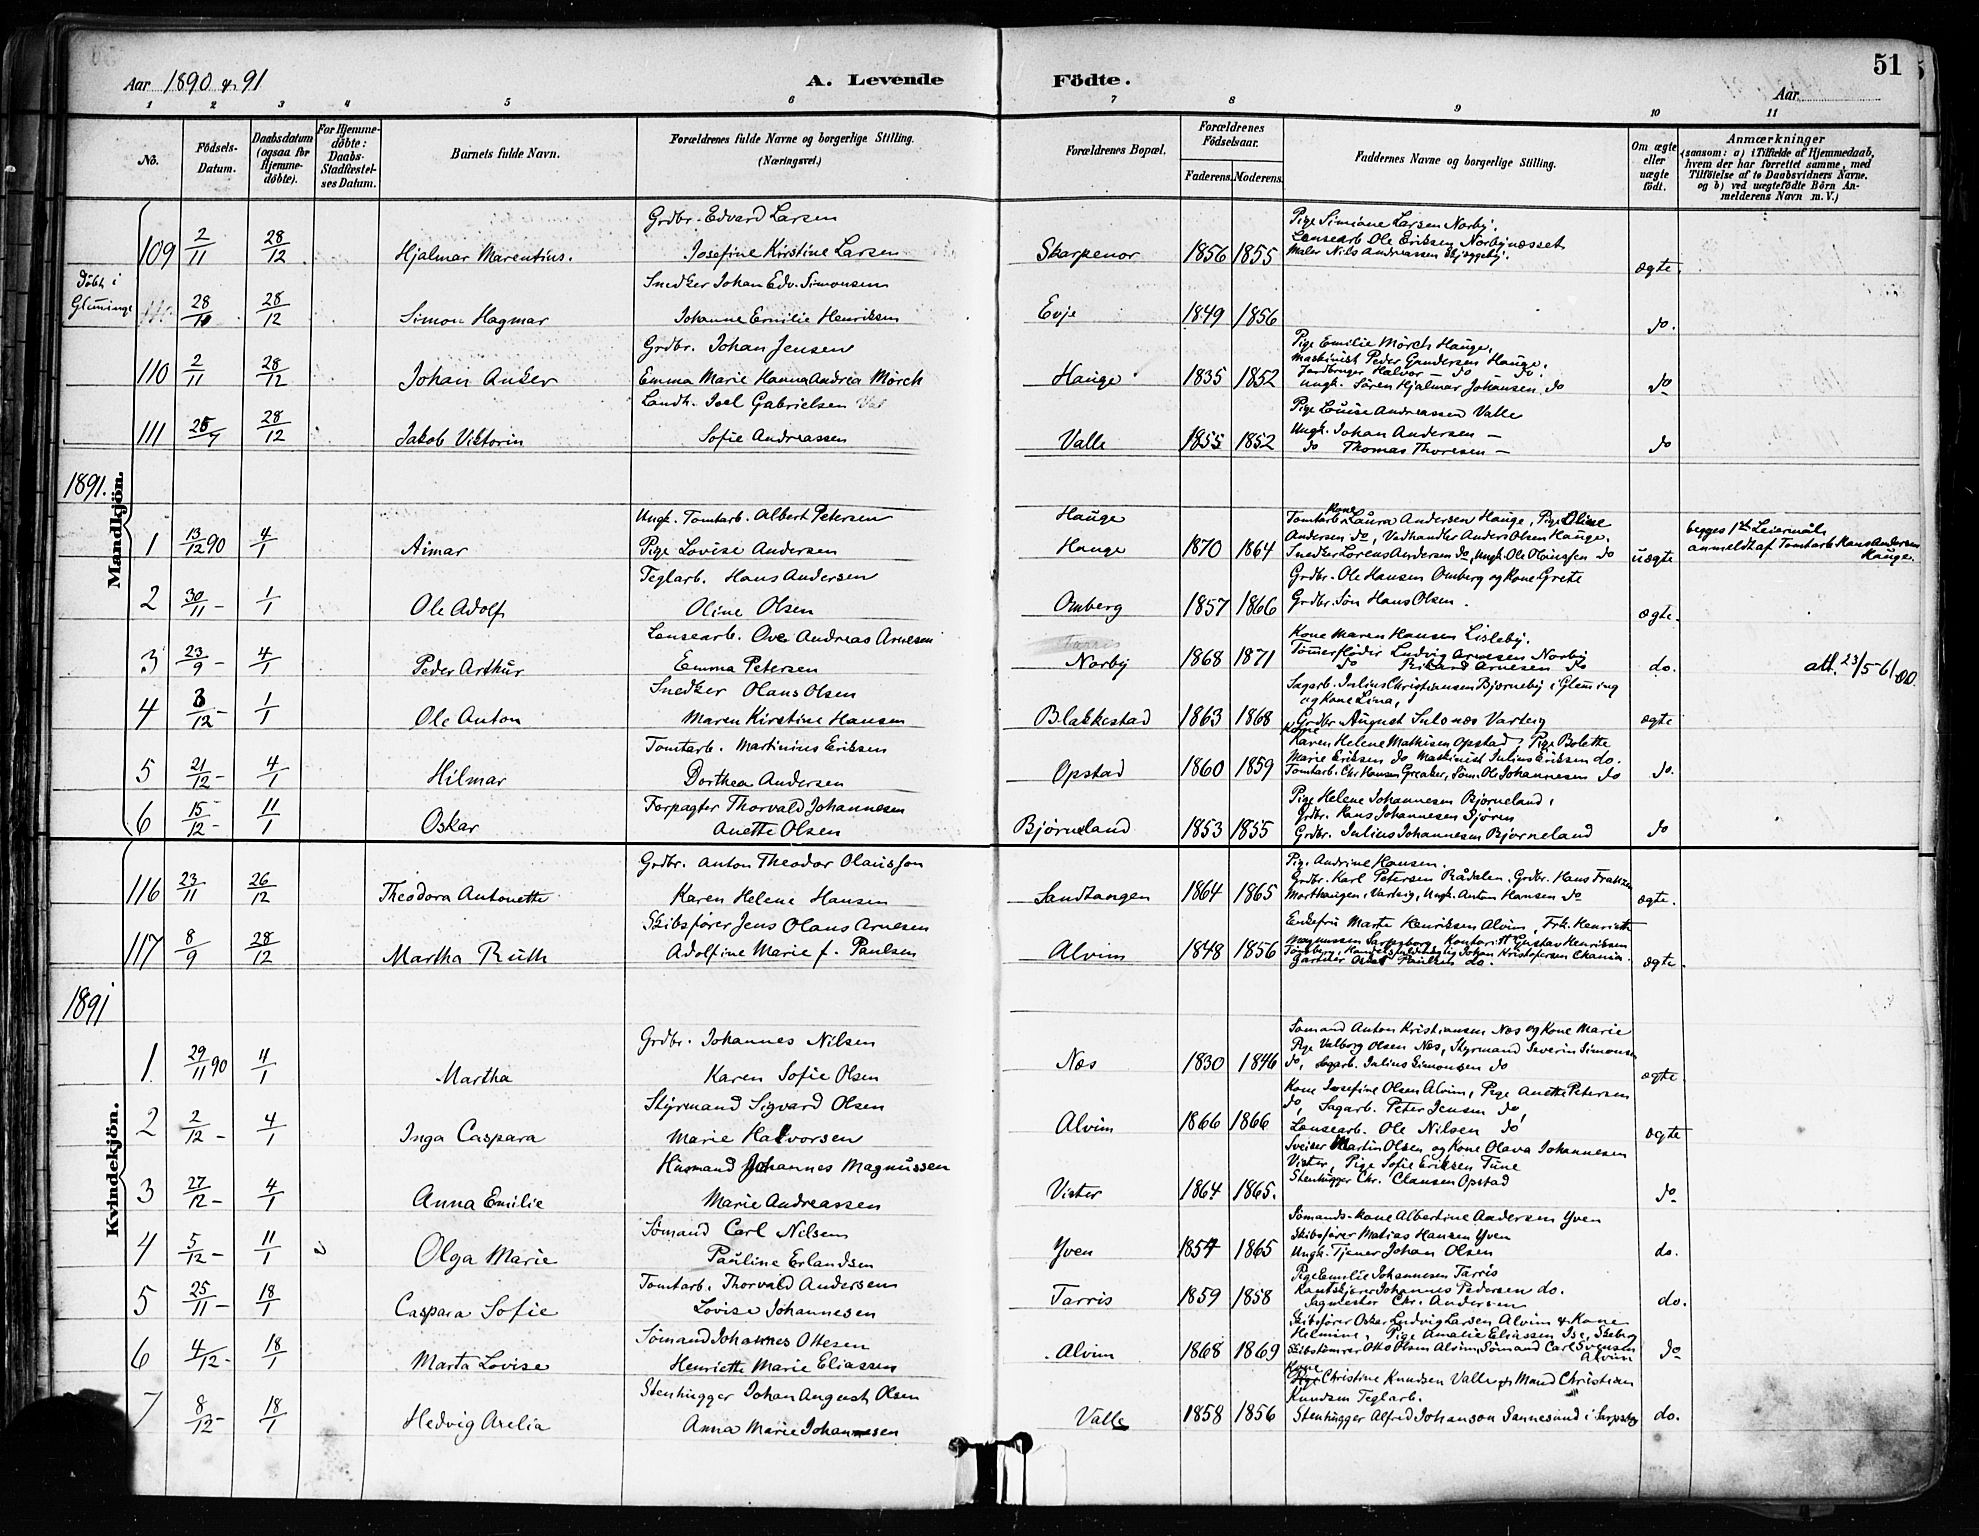 51
Aar 1890 & 91
A. Levende Födte.
Aar
1 2 3 4 5 6 7 8 9 10 11
No. Födsels-Datum. Daabsdatum (ogsaa for Hjemme-döbte). For Hjemme-döbte: Daabs-Stadfæstel-ses Datum. Barnets fulde Navn. Forældrenes fulde Navne og borgerlige Stilling. (Næringsvei.) Forældrenes Bopæl. Forældrenes Födselsaar. Faderens. Moderens. Faddernes Navne og borgerlige Stilling. Om ægte eller uægte födt. Anmærkninger (saasom: a) i Tilfælde af Hjemmedaab, hvem der har forrettet samme, med Tilföielse af to Daabsvidners Navne. og b) ved uægtefödte Börn An-melderens Navn m. V.)
Grdbr. Edvard Larsen Pige Simione Larsen Norby.
Lensearb. Ole Eriksen Norbynæsset
109 2/11 28/12 Hjalmar Marentius. Josefine Kirstine Larsen Skarpenor 1856 1855 Maler Nils Andreassen ægte.
Döbt i Glemminge Snedker Johan Edv. Simonsen
28/10 28/12 Simon Hagmar Johanne Emilie Henriksen Evje 1849 1856 do.
Grdbr. Johan Jensen Pige Emilie Mörch Hauge.
Maskinist Peder Gundersen Hauge.
110 2/11 28/12 Johan Anker Emma Marie Hanna Andrea Mörch Hauge 1835 1852 Jordbruger Halvor — do — do.
Ungk. Sören Hjalmar Johansen do do
Landh. Joel Gabrielsen Pige Louise Andreassen Valle
Ungk. Johan Andersen —
111 25/7 28/12 Jakob Viktorin Sofie Andreassen Valle 1855 1852 do Thomas Thoresen — do
1891.
Mandkjön.
Ungk. Tomtarb. Albert Petersen Hauge Tomtarb. Kone Laura Andersen Hauge, Pige Oline
1 13/12 90 4/1 Aimar Pige Lovise Andersen Hauge 1870 1864 Andersen do, Vedhandler Anders Olsen Hauge,
Snedker Lorens Andersen do, Ungk. Ole Olaussen do uægte begges 1ste Leiermål, anmeldt af Tomtarb. Hans Andersen Hauge.
Teglarb. Hans Andersen Grdbr. Ole Hansen Omberg og Kone Grete
2 30/11 – 1/1 Ole Adolf Oline Olsen Omberg 1857 1866 Grdbr. Søn Hans Olsen. ægte.
Lensearb. Ove Andreas Arnesen Tarris Kone Maren Hansen Lisleby.
3 23/9 – 4/1 Peder Arthur Emma Petersen Norby 1868 1871 Tømmerfløder Ludvig Arnesen Norby
do Rikard Arnesen do do. att. 23/5-61/00.
Snedker Olaus Olsen Sagarb. Julius Christiansen Bjørneby i Glemming
og Kone Lina,
4 8/12 – 1/1 Ole Anton Maren Kirstine Hansen Blakkestad 1863 1868 Grdbr August Sulonæs Varteig ægte
Tomtarb. Martinius Eriksen Kone Karen Helene Mathisen Opstad, Pige Bolette
5 21/12 – 4/1 Hilmar Dorthea Andersen Opstad 1860 1859 Marie Eriksen do, Maskinist Julius Eriksen do.
Tomtarb. Chr. Hansen Greaker, Søm. Ole Johannesen do do.
Forpagter Thorvald Johannesen Pige Helene Johannesen Bjørneland,
Grdbr. Hans Johannesen Bjøren
6 15/12 – 11/1 Oskar Anette Olsen Bjørneland 1853 1855 Grdbr. Julius Johannesen Bjørneland do
Grdbr. Anton Theodor Olaussen Pig. Andrine Hansen.
Grdbr. Karl Petersen Rådalen, Grdbr. Hans Frantzen
116 23/11 26/12 Theodora Antonette Karen Helene Hansen Sandtangen 1864 1865 Morthaugen, Varteig, Ungk. Anton Hansen do ægte.
Skibsfører Jens Olaus Arnesen Enkefru Marte Henriksen Alvim, Frk. Henriette
117 8/9 28/12 Martha Ruth Adolfine Marie f. Paulsen Alvim 1848 1856 Magnussen Sarpsborg, Kontorist Gustav Henriksen
Tønsberg, Handelsfuldmægtig Johan Kristofersen Chania.
Gartner Oskar Paulsen do. ægte.
1891
Kvindekjön.
Grdbr. Johannes Nilsen Sømand Anton Kristiansen Næs og Kone Marie
1 29/11 90 4/1 Martha Karen Sofie Olsen Næs 1830 1846 Pige Valborg Olsen Næs, Styrmand Severin Simonsen
do, Sagarb. Julius Simonsen do ægte.
Styrmand Sigvard Olsen Kone Josefine Olsen Alvim, Pige Anette Petersen
do, Sagarb. Peter Jensen do,
2 2/12 – 4/1 Inga Caspara Marie Halvorsen Alvim 1866 1866 Lensearb. Ole Nilsen do ægte
Husmand Johannes Magnussen Sveiser Martin Olsen og Kone Olava Johannesen
Vister, Pige Sofie Eriksen Tune
3 27/12 – 4/1 Anna Emilie Marie Andreassen Vister 1864 1865. Stenhugger Chr. Clausen Opstad do
Sømand Carl Nilsen Sømands-Kone Albertine Andersen Yven
Skibsfører Matias Hansen Yven
4 5/12 – 11/1 Olga Marie Pauline Erlandsen Yven 1857 1865 Ungk. Tjener Johan Olsen do.
Tomtarb. Thorvald Andersen Pige Emilie Johannesen Tarris
Kantskjærer Johannes Pedersen do.
5 25/11 – 18/1 Caspara Sofie Lovise Johannesen Tarris 1859 1858 Sagmester Chr. Andersen do.
Sømand Johannes Ottesen Skibsfører Oskar Ludvig Larsen Alvim & Kone
Helmine, Pige Amalie Eliassen Ise, Skeberg
6 4/12 – 18/1 Marta Lovise Henriette Marie Eliassen Alvim 1868 1869 Skibstømrer Otto Olsen Alvim, Sømand Carl Svensen Alvim do
Stenhugger Johan August Olsen Kone Christine Knudsen Valle og Mand Christian
Knudsen Teglarb.
7 8/12 – 18/1 Hedvig Axelia Anna Marie Johannesen Valle 1858 1856 Stenhugger Alfred Johanson Sannesund i Sarpsbg do.